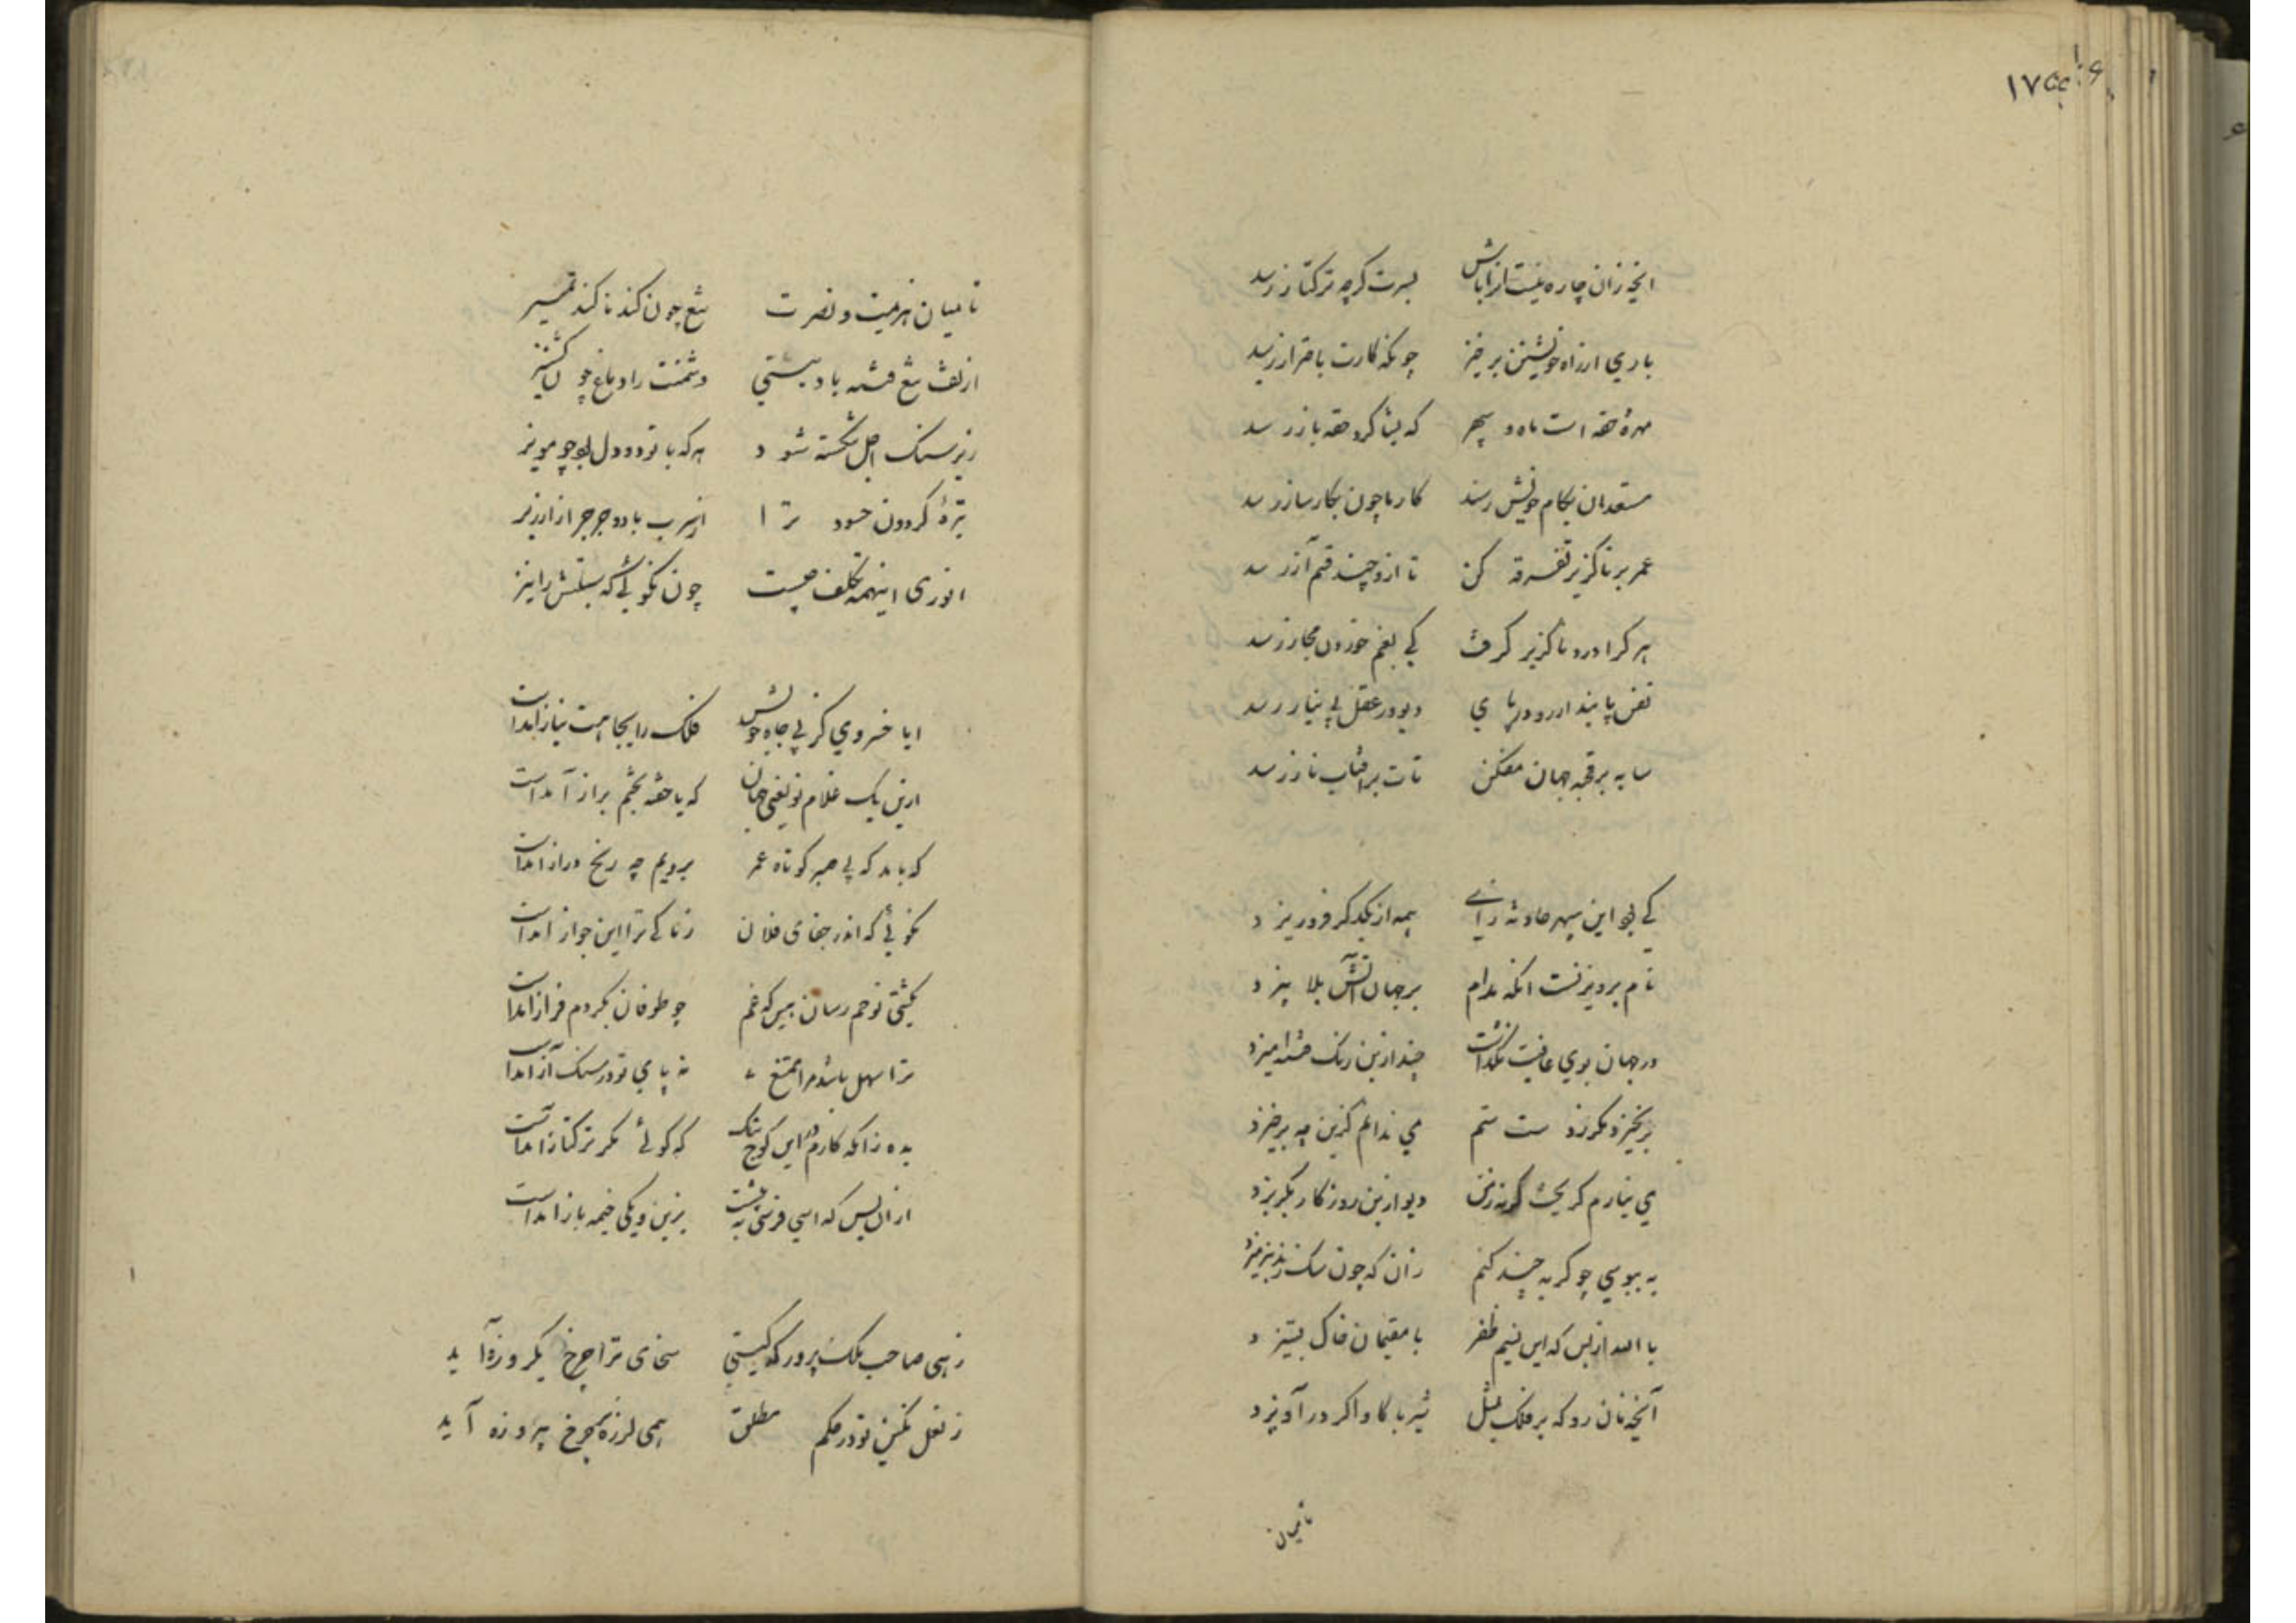 انچه زان چاره نیست انرا باش بسرت گرچه ترکتاز رسد
باری از راه خویشتن برخیز چونکه کارت باحتراز رسد
مهره حقه است ماه و سپهر که بشاکرد حقه باز رسد
مستعدان بکام خویش رسند کارها چون بکارساز رسد
عمر بر ناکزیر تفرقه کن تا ازو چند قسم آز رسد
هر کرا درد ناکزیر گرفت کی بغم خوردن مجاز رسد
نفس پای دیو در عقل بی نیاز رسد
سایه بر قحبه جهان مفکن تات بر افتاب ناز رسد
کی بود این سپهر حادثه زای همه از یکدگر فرو ریزد
نام پرویزنست انکه مدام بر جهان آتش بلا بیزد
در جهان بوی عافیت نگذاشت چند ازین رنک فتنه امیزد
برنخیزد مکر ز دست ستم می ندانم کزین چه برخیزد
می نیارم گریخت گرنه ز من دیو ازین روزگار بگریزد
به ببوسی چو گربه چند کنم زان که چون سک ز بد نپرهیزد
با اسد از بس که این نسیم ظفر با مقیمان خاک بستیزد
آنچنان رو که بر فلک بمثل شیر با کاو اگر درآویزد
تا میان
تا میان هزیمت و نصرت تیغ چون کند نا کند تمییز
از تف تیغ فتنه باد بستی دشمنت را دماغ چون کشنیز
زیر سنک اجل شکسته شود هرکه با تو دو دل بود چو مویز
تیره گردون حسود ترا از سرب باد و جرجر از ارزیز
انوری اینهمه تکلف چیست چون نگوئی که بستش را نیز
ایا خسروی کز پی جاه خویش فلک را بجاهت نیاز آمدست
ازین یک غلام تو یعنی جهان که با حقه چشم براز آمدست
که باید که بی صبر کوتاه عمر برویم چه رنج دراز آمدست
نگوئی که اندر جفای فلان زما کی ترا این جواز آمدست
بکشتی نوحم رسان بس که غم چو طوفان بکردم فراز آمدست
ترا سهل باشد مرا ممتنع نه پای تو در سنک آز آمدست
بده زانکه کارم در این کوچ تنک که گوئی مگر ترکتاز آمدست
از ان پس که اسبی و فرشی به بزین و یکی خیمه باز آمدست
زهی صاحب ملک پرور که گیتی سخای ترا چرخ یکروزه آید
ز نعل نگین تو در حکم مطلق همی لرزه بر چرخ پیروزه آید